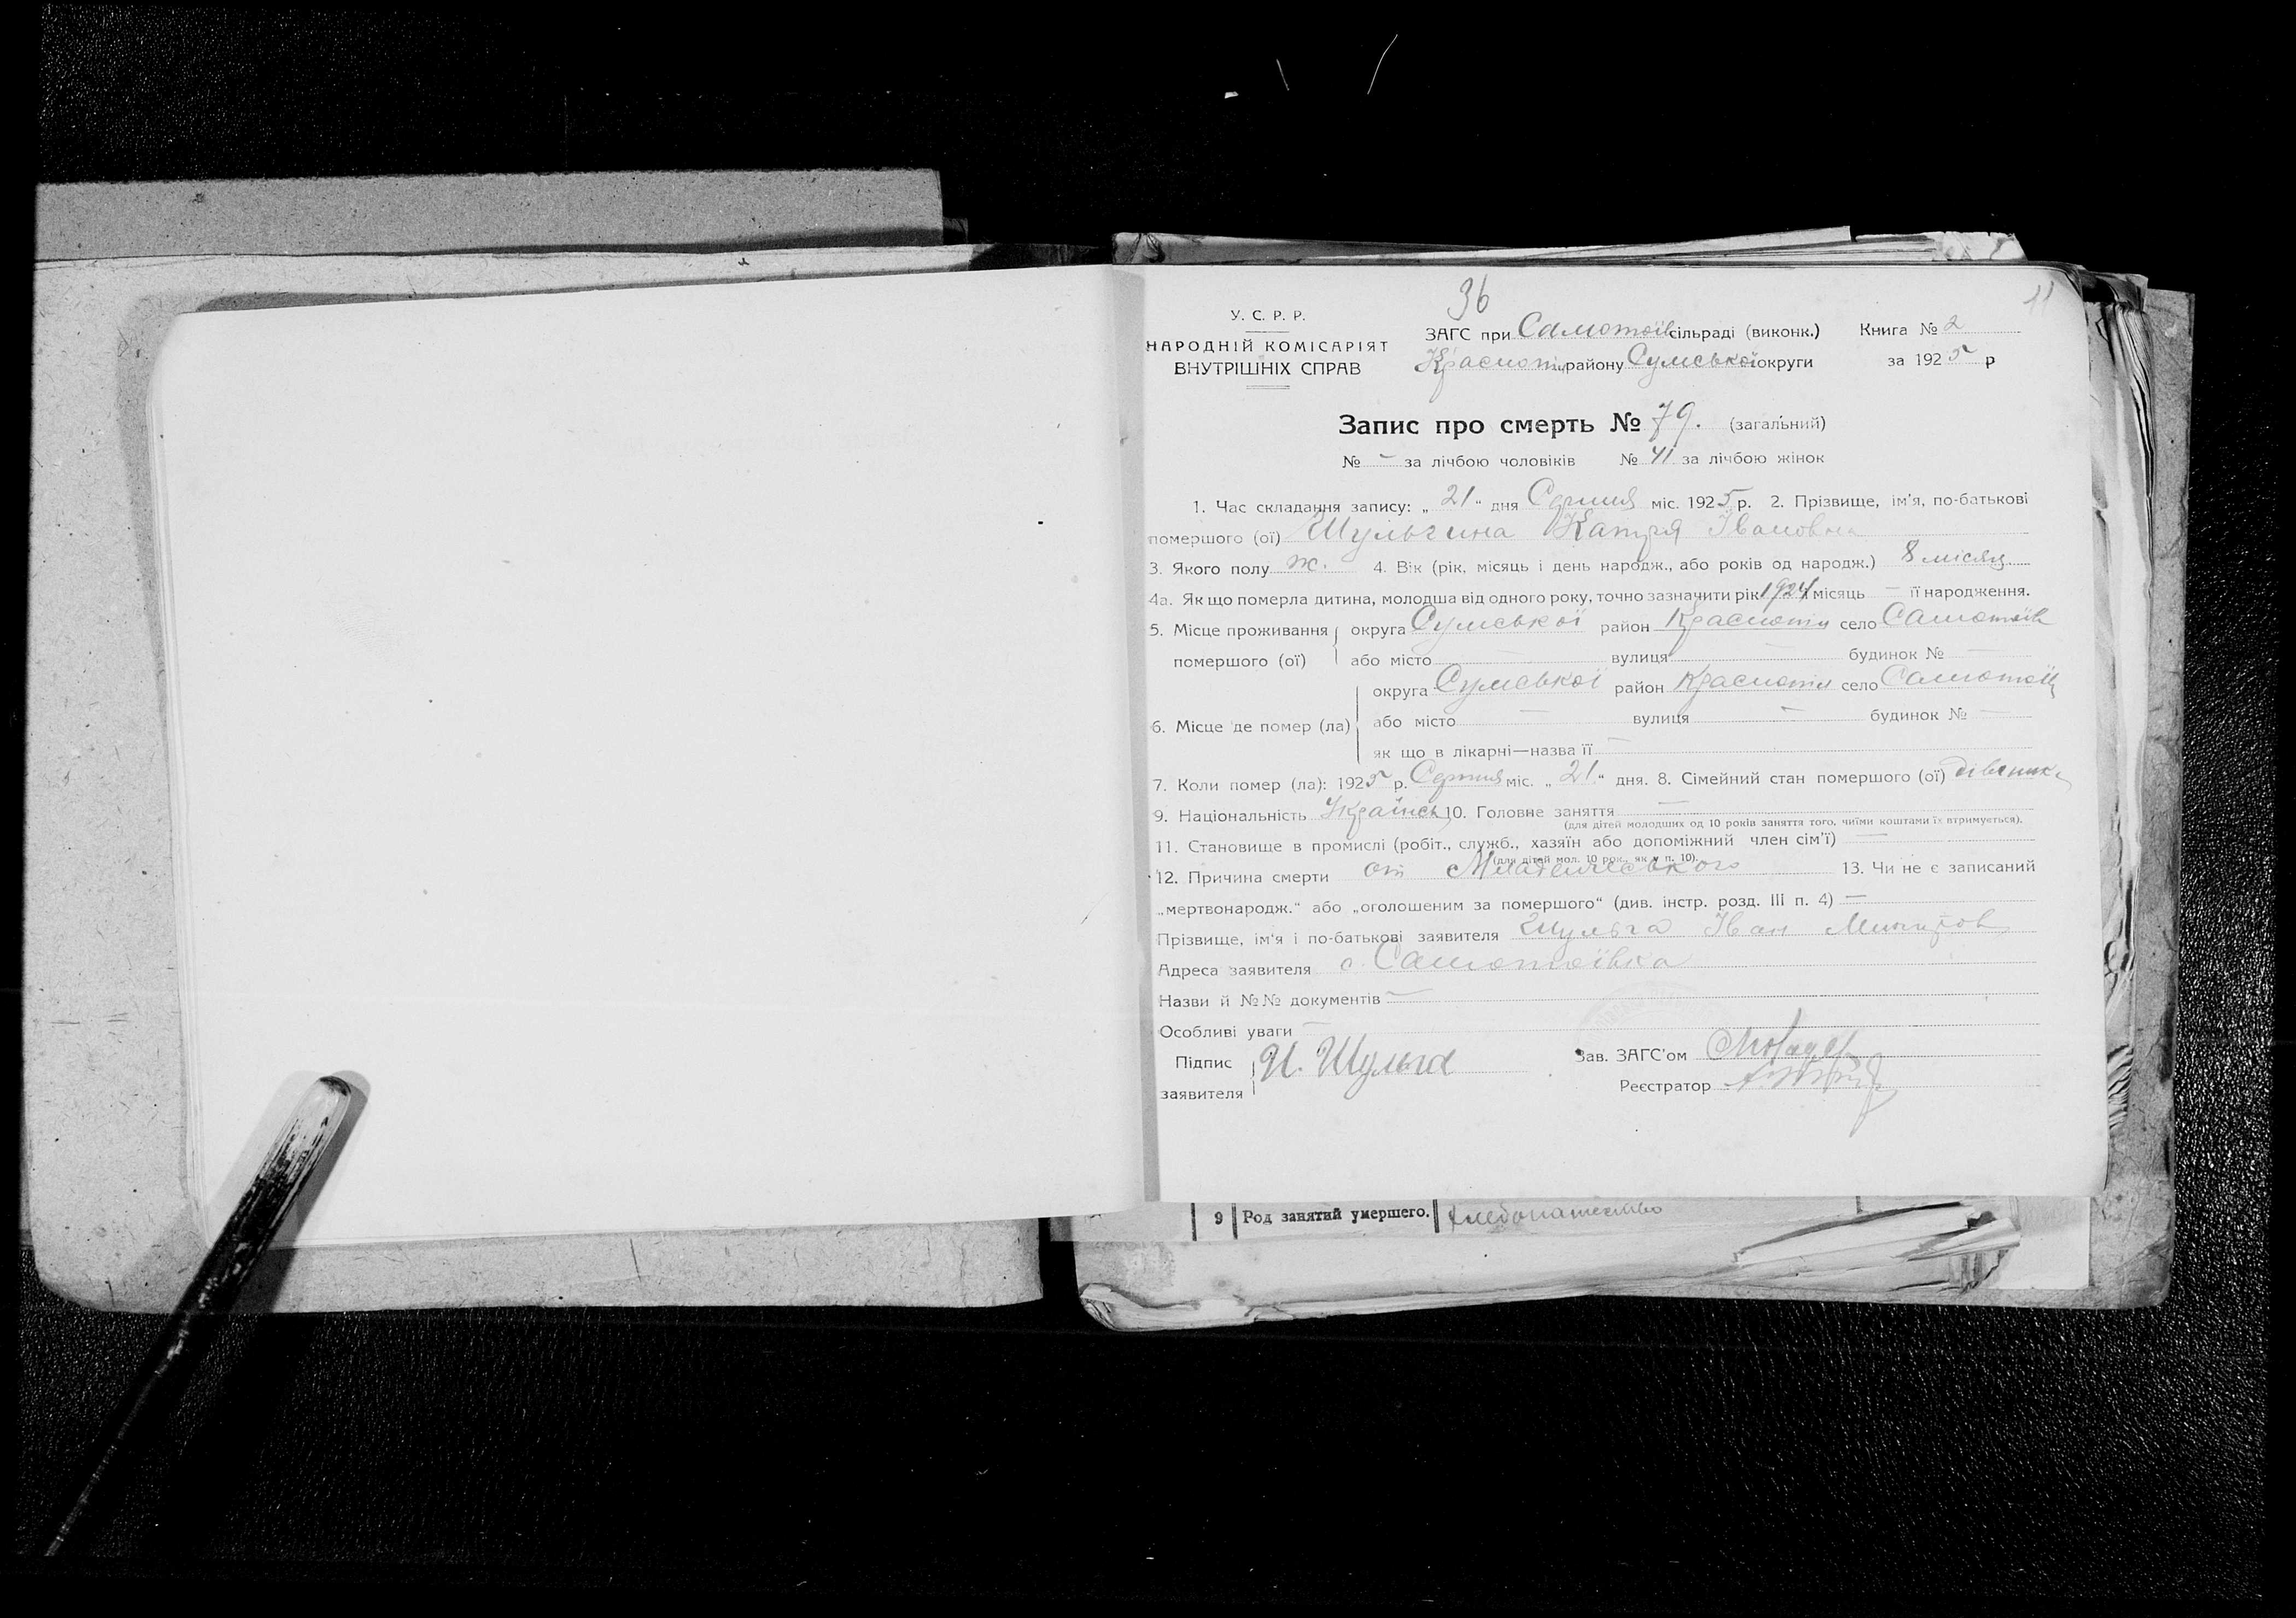 36
11
У. С. Р. Р.
НАРОДНІЙ КОМІСАРІЯТ
ВНУТРІШНІХ СПРАВ
ЗАГС при Самотоїв сільраді (виконк.) Книга № 2
Краснопіл району Сумської округи за 1925 р
Запис про смерть № 79. (загальний)
№ - за лічбою чоловіків № 41 за лічбою жінок
1. Час складання запису: „ 21 “ дня Серпня міс. 1925 р. 2. Прізвище, ім'я, по-батькові
помершого (ої) Шульгина Катря Івановна
3. Якого полу ж. 4. Вік (рік, місяць і день народж., або років од народж.) 8 місяц
4а. Як що померла дитина, молодша від одного року, точно зазначити рік 1924 місяць — її народження.
5. Місце проживання округа Сумської район Краснопіл село Самотоїв
помершого (ої) або місто — вулиця — будинок № —
округа Сумської район Краснопіл село Самотоїв
6. Місце де помер (ла) або місто — вулиця — будинок № —
як що в лікарні—назва її —
7. Коли помер (ла): 1925 р. Серпня міс. „ 21 “ дня. 8. Сімейний стан помершого (ої)
9. Національність Українсь 10. Головне заняття —
(для дітей молодших од 10 років заняття того, чиїми коштами їх втримується).
11. Становище в промислі (робіт., служб., хазяїн або допоміжний член сім'ї) —
(для дітей мол. 10 рок., як у п. 10).
12. Причина смерти от Младенческого 13. Чи не є записаний
„мертвонародж.“ або „оголошеним за помершого“ (див. інстр. розд. III п. 4) —
Прізвище, ім'я і по-батькові заявителя Шульга Іван
Адреса заявителя с. Самотоївка
Назви й №№ документів —
Особливі уваги —
Підпис И. Шульга Зав. ЗАГС'ом
заявителя Реєстратор
9 Род занятий умершего. хлебопашество